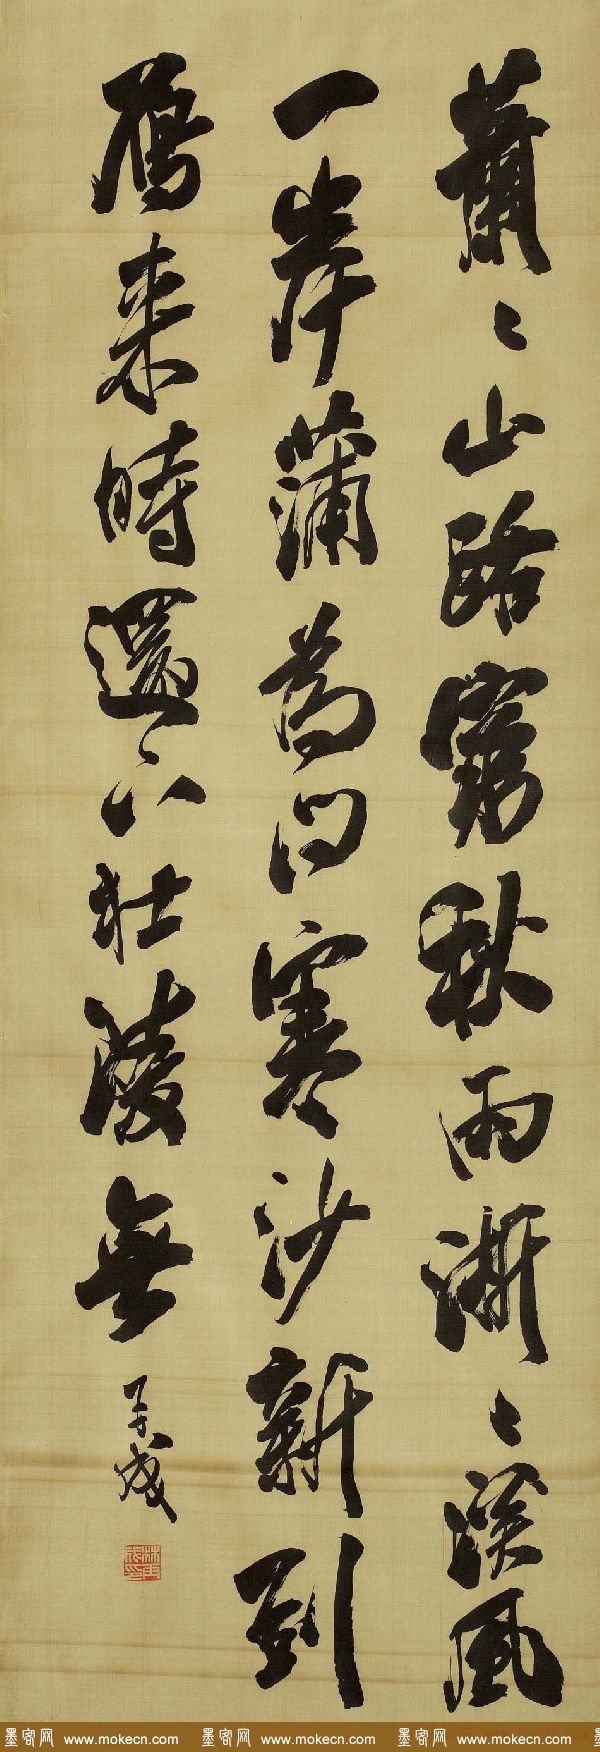 蕭〻山路窮秋雨淅〻溪風
一岸蒲為問寒沙新到
鴈来時還下杜陵無
子成
墨客网 www.mokecn.com 墨客网 www.mokecn.com 墨客网 www.mokecn.com